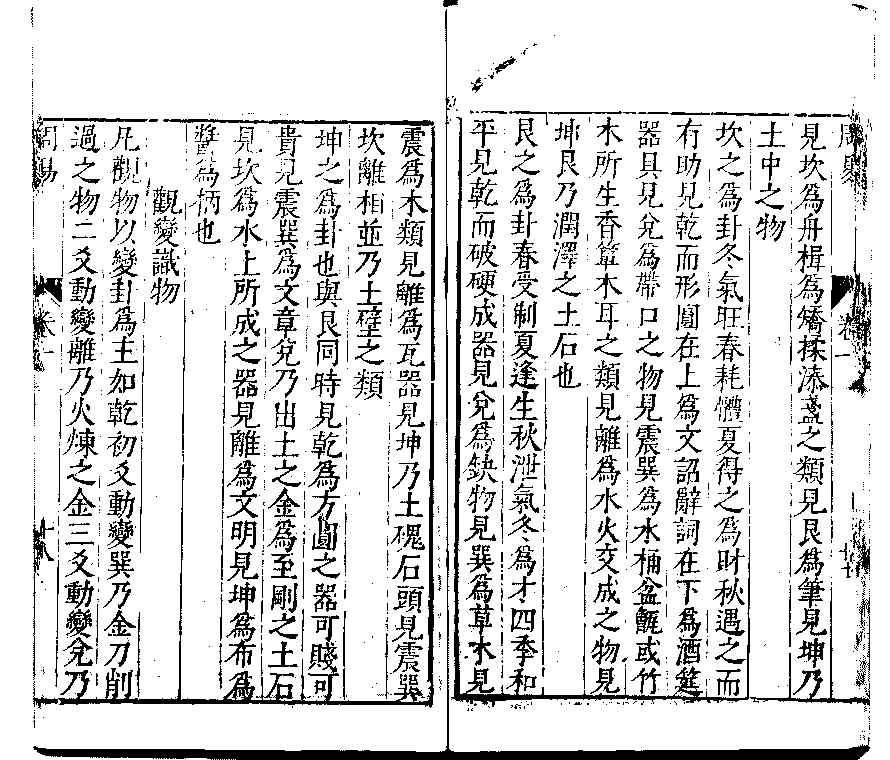 周易
卷一
見坎為舟楫為矯揉漆盞之類見艮為筆見坤乃
土中之物
坎之為卦冬氣旺春耗憊夏得之為財秋遇之而
有助見乾而形圓在上為文詔辭詞在下為酒筵
器具見兌為帶口之物見震巽為水桶盆甑或竹
木所生香蕈木耳之類見離為水火交成之物見
坤艮乃潤澤之土石也
艮之為卦春受制夏逢生秋泄氣冬為才四季和
平見乾而破硬成器見兌為缺物見巽為草木見
震為木類見離為瓦器見坤乃土磈石頭見震巽
坎離相並乃土壁之類
坤之為卦也與艮同時見乾為方圓之器可賤可
貴見震巽為文章兌乃出土之金為至剛之土石
見坎為水土所成之器見離為文明見坤為布為
為柄也
觀變識物
凡觀物以變卦為主如乾初爻動變巽乃金刀削
過之物二爻動變離乃火煉之金三爻動變兌乃
周易
卷一
十八